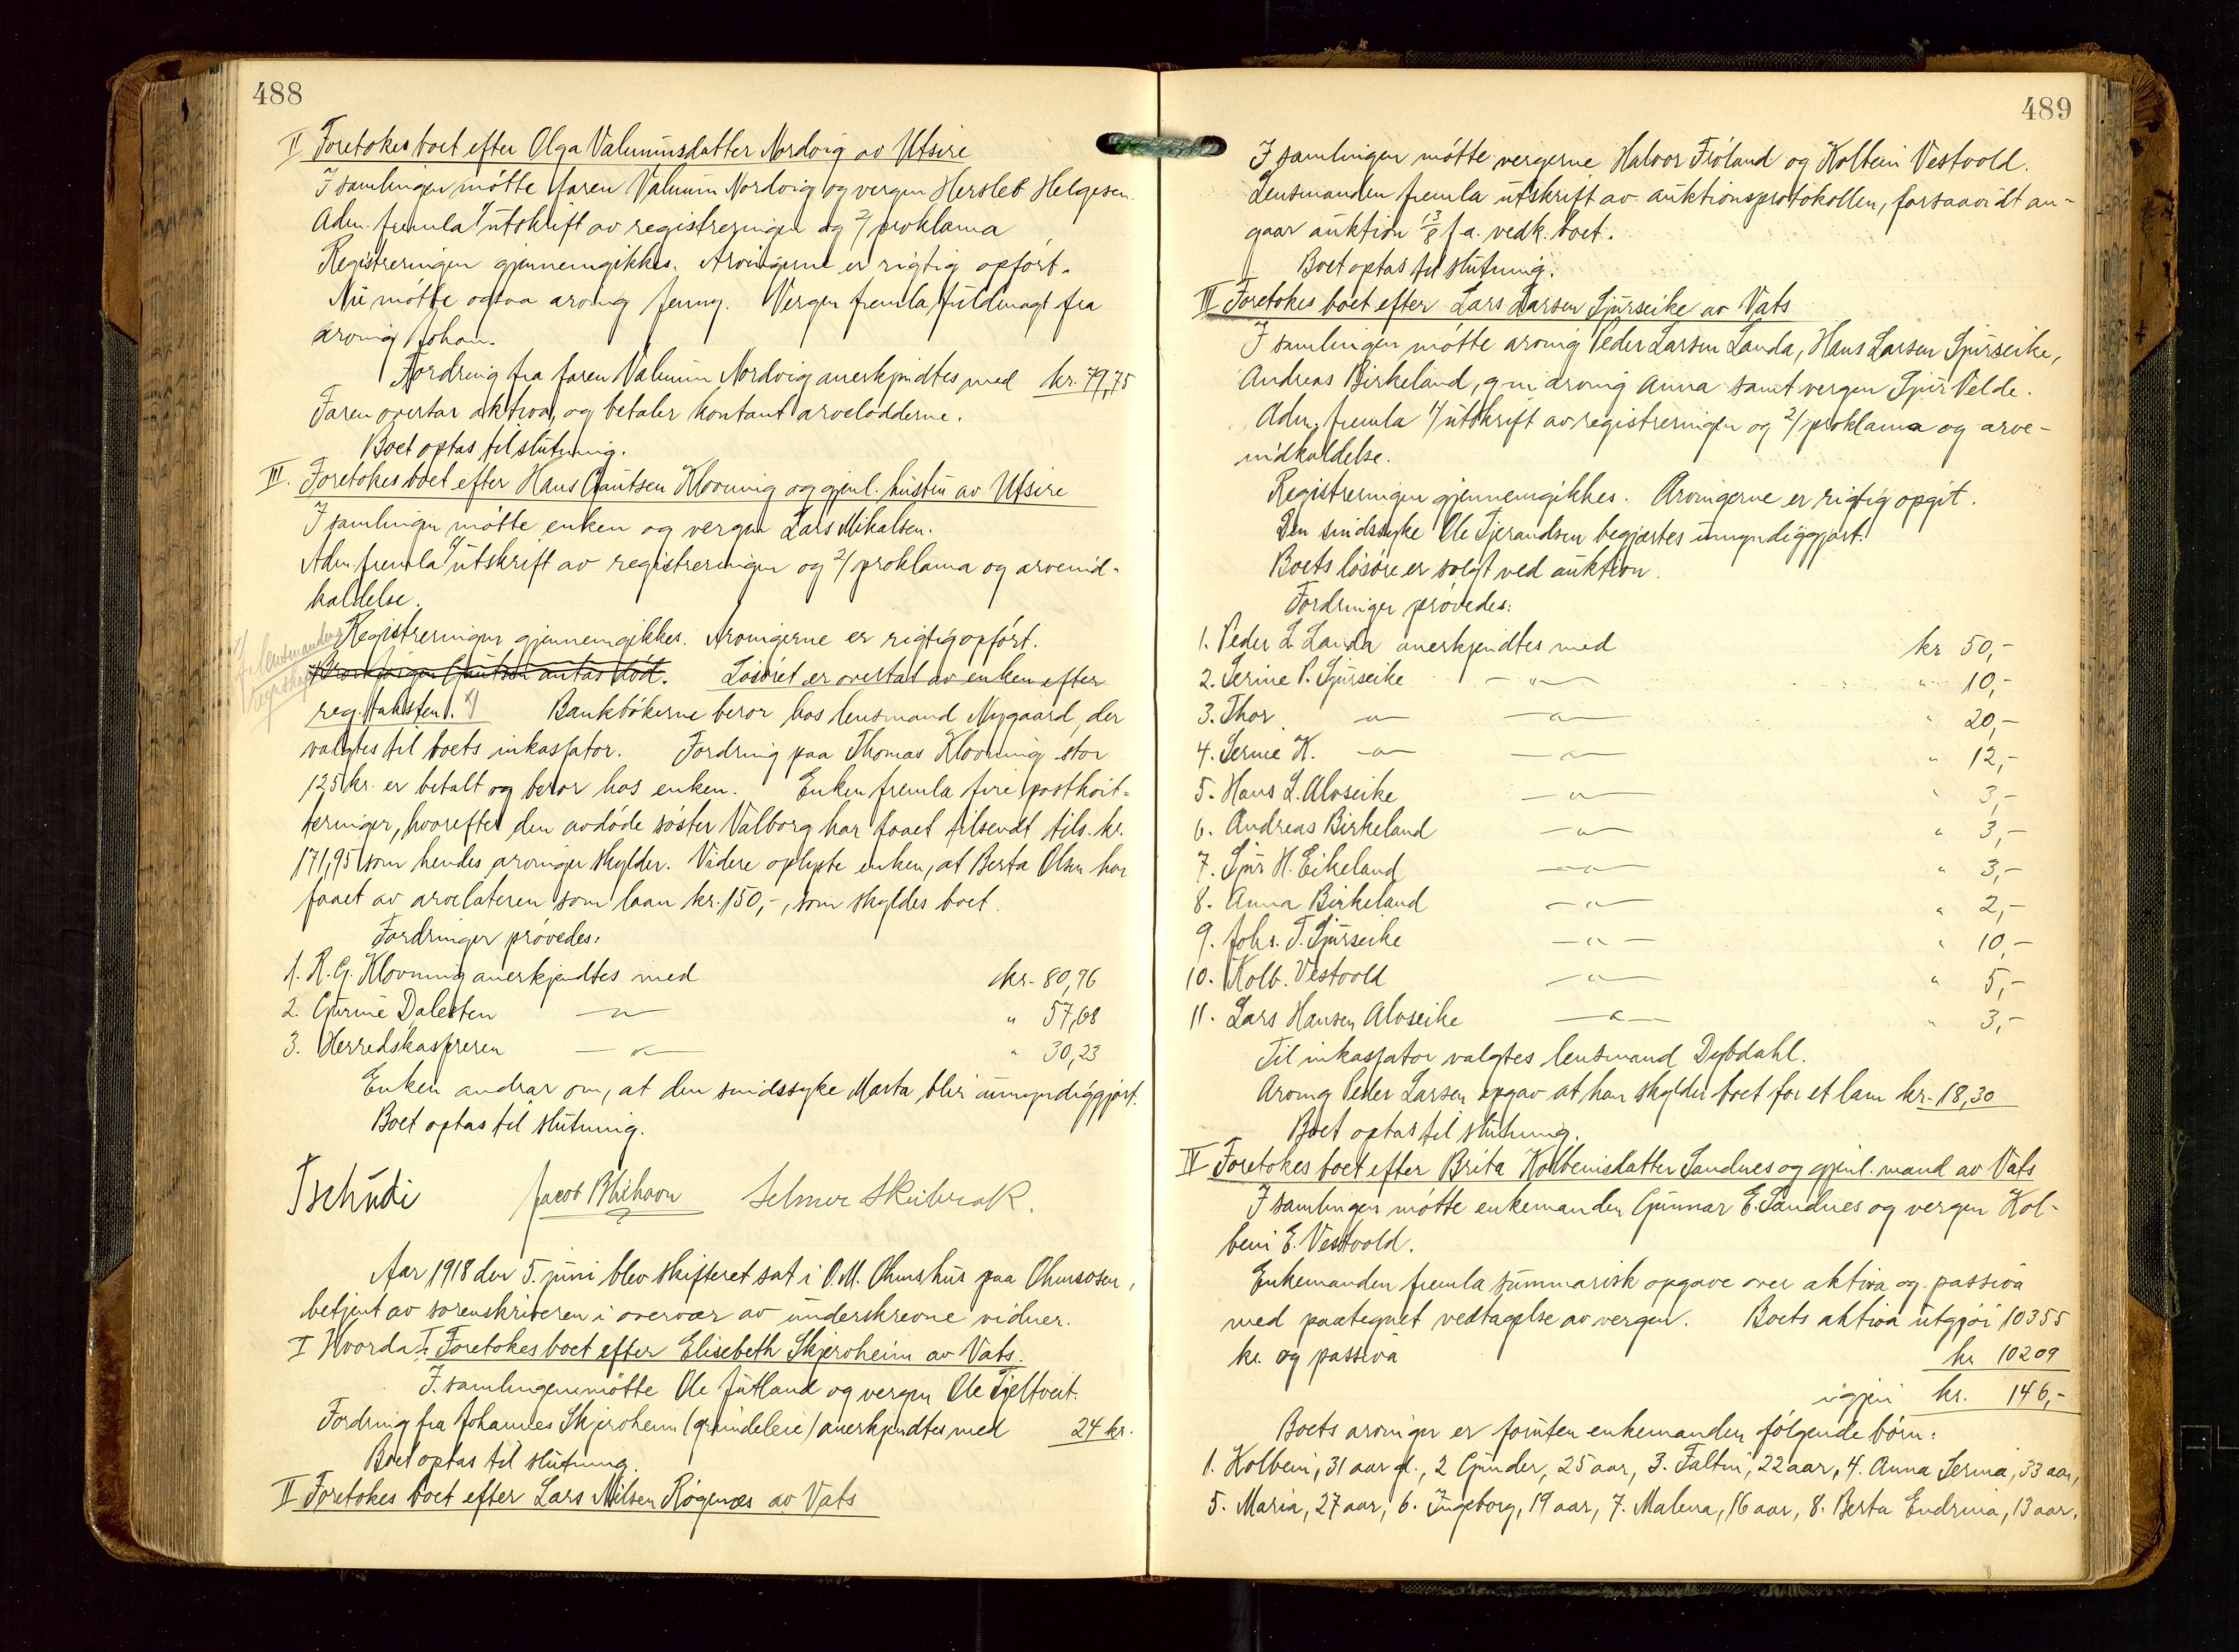 488
II Foretokes boet efter Olga Valuminsdatter Nordvig av Utsire
I samlingen møtte faren Valumin Nordvig og vergen Hersleb Helgesen.
Adm. fremla 1/ utskrift av registreringen og 2/ proklama
Registreringen gjennemgikkes. Arvingerne er rigtig opført.
Nu møtte ogsaa arving Jenny. Vergen fremla fuldmagt fra
arving Johan.
Fordring fra faren Valumin Nordvig anerkjendtes med kr. 79,75
Faren overtar aktiva, og betaler kontant arvelodderne.
Boet optas til slutning.
III. Foretokes boet efter Hans Gautsen Klovning og gjenl. hustru av Utsire
I samlingen møtte enken og vergen Lars Mikalsen.
Adm. fremla 1/ utskrift av registreringen og 2/ proklama og arveind-
kaldelse.
x/ til lensmandens
Registreringen gjennemgikkes. Arvingerne er rigtig opført.
Gautsen antas død. Løsøret er overtat av enken efter
reg. taksten. x) Bankbøkerne beror hos lensmand Nygaard, der
valgtes til boets inkassator. Fordring paa Thomas Klovning stor
125 kr. er betalt og beror hos enken. Enken fremla fire postkvit-
teringer, hvorefter den avdøde søster Valborg har faaet tilsendt tils. kr.
171,95 som hendes arvinger skylder. Videre oplyste enken, at Berta Olsen har
faaet av arvelateren som laan kr. 150,-, som skyldes boet.
Fordringer prøvedes:
1. R. G. Klovning anerkjendtes med kr. 80,76
2. Gurine Dalesten —"— " 57,68
3. Herredskasereren —"— " 30,23
Enken andrar om, at den sindssyke Marta blir umyndiggjort.
Boet optas til slutning.
Tschudi Jacob Selmer Skeibrok.
Aar 1918 den 5. juni blev skifteret sat i O. M. Ohmshus paa Ohmsosen,
betjent av sorenskriveren i overvær av underskrevne vidner.
I Hvorda I. Foretokes boet efter Elisebeth Skjerheim av Vats.
I samlingen møtte Ole Jutland og vergen Ole Fjeltveit.
Fordring fra Johannes Skjerheim (grundeleie) anerkjendtes med 24 kr.
Boet optas til slutning.
II Foretokes boet efter Lars Nilsen Røgenæs av Vats
489
I samlingen møtte vergerne Halvor Frøland og Kolbein Vestvold.
Lensmanden fremla utskrift av auktionsprotokollen, forsaavidt an-
gaar auktion 13/8 f. a. vedk. boet.
Boet optas til slutning.
III Foretokes boet efter Lars Larsen Sjurseike av Vats
I samlingen møtte arving Peder Larsen Landa, Hans Larsen Sjurseike,
Andreas Birkeland, g. m. arving Anna samt vergen Sjur Velde.
Adm. fremla 1/ utskrift av registreringen og 2/ proklama og arve-
indkaldelse.
Registreringen gjennemgikkes. Arvingerne er rigtig opgit.
Den sindssyke Ole Tjerandsen begjærtes umyndiggjort.
Boets løsøre er solgt ved auktion.
Fordringer prøvedes:
1. Peder L. Landa anerkjendtes med kr 50,-
2. Serine P. Sjurseike —"— " 10,-
3. Thor —"— —"— " 20,-
4. Serine K. —"— —"— " 12,-
5. Hans L. Alvseike —"— " 3,-
6. Andreas Birkeland —"— " 3,-
7. Sjur H. Eikeland —"— " 3,-
8. Anna Birkeland —"— " 2,-
9. Johs. T. Sjurseike —"— " 10,-
10. Kolb. Vestvold —"— " 5,-
11. Lars Hansen Alvseike —"— " 3,-
Til inkassator valgtes lensmand Dybdahl.
Arving Peder Larsen opgav at han skylder boet for et lam kr. 18,30
Boet optas til slutning.
IV Foretokes boet efter Brita Kolbeinsdatter Sandnes og gjenl. mand av Vats
I samlingen møtte enkemanden Gunnar E. Sandnes og vergen Kol-
bein E. Vestvold.
Enkemanden fremla summarisk opgave over aktiva og passiva
med paategnet vedtagelse av vergen. Boets aktiva utgjør 10355
kr. og passiva kr 10209
igjen kr. 146,-
Boets arvinger er foruten enkemanden følgende børn:
1. Kolbein, 31 aar gl., 2 Gunder, 25 aar, 3. Faltin, 22 aar, 4. Anna Serina, 33 aar,
5. Maria, 27 aar, 6. Ingeborg, 19 aar, 7. Malena, 16 aar, 8. Berta Endrina, 13 aar.